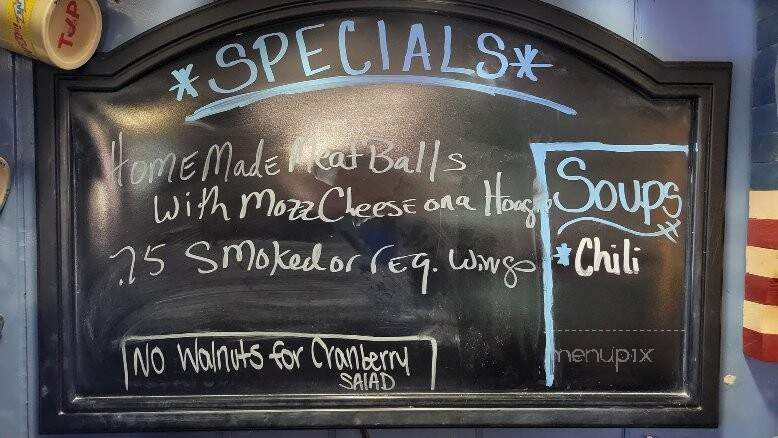 T.J.P
*SPECIALS*
HomEMade Meat Balls
With Mozz Cheese on a Hoag
.75 Smoked or reg. Wings
No Walnuts for Cranberry
SALAD
Soups
*Chili
menupix